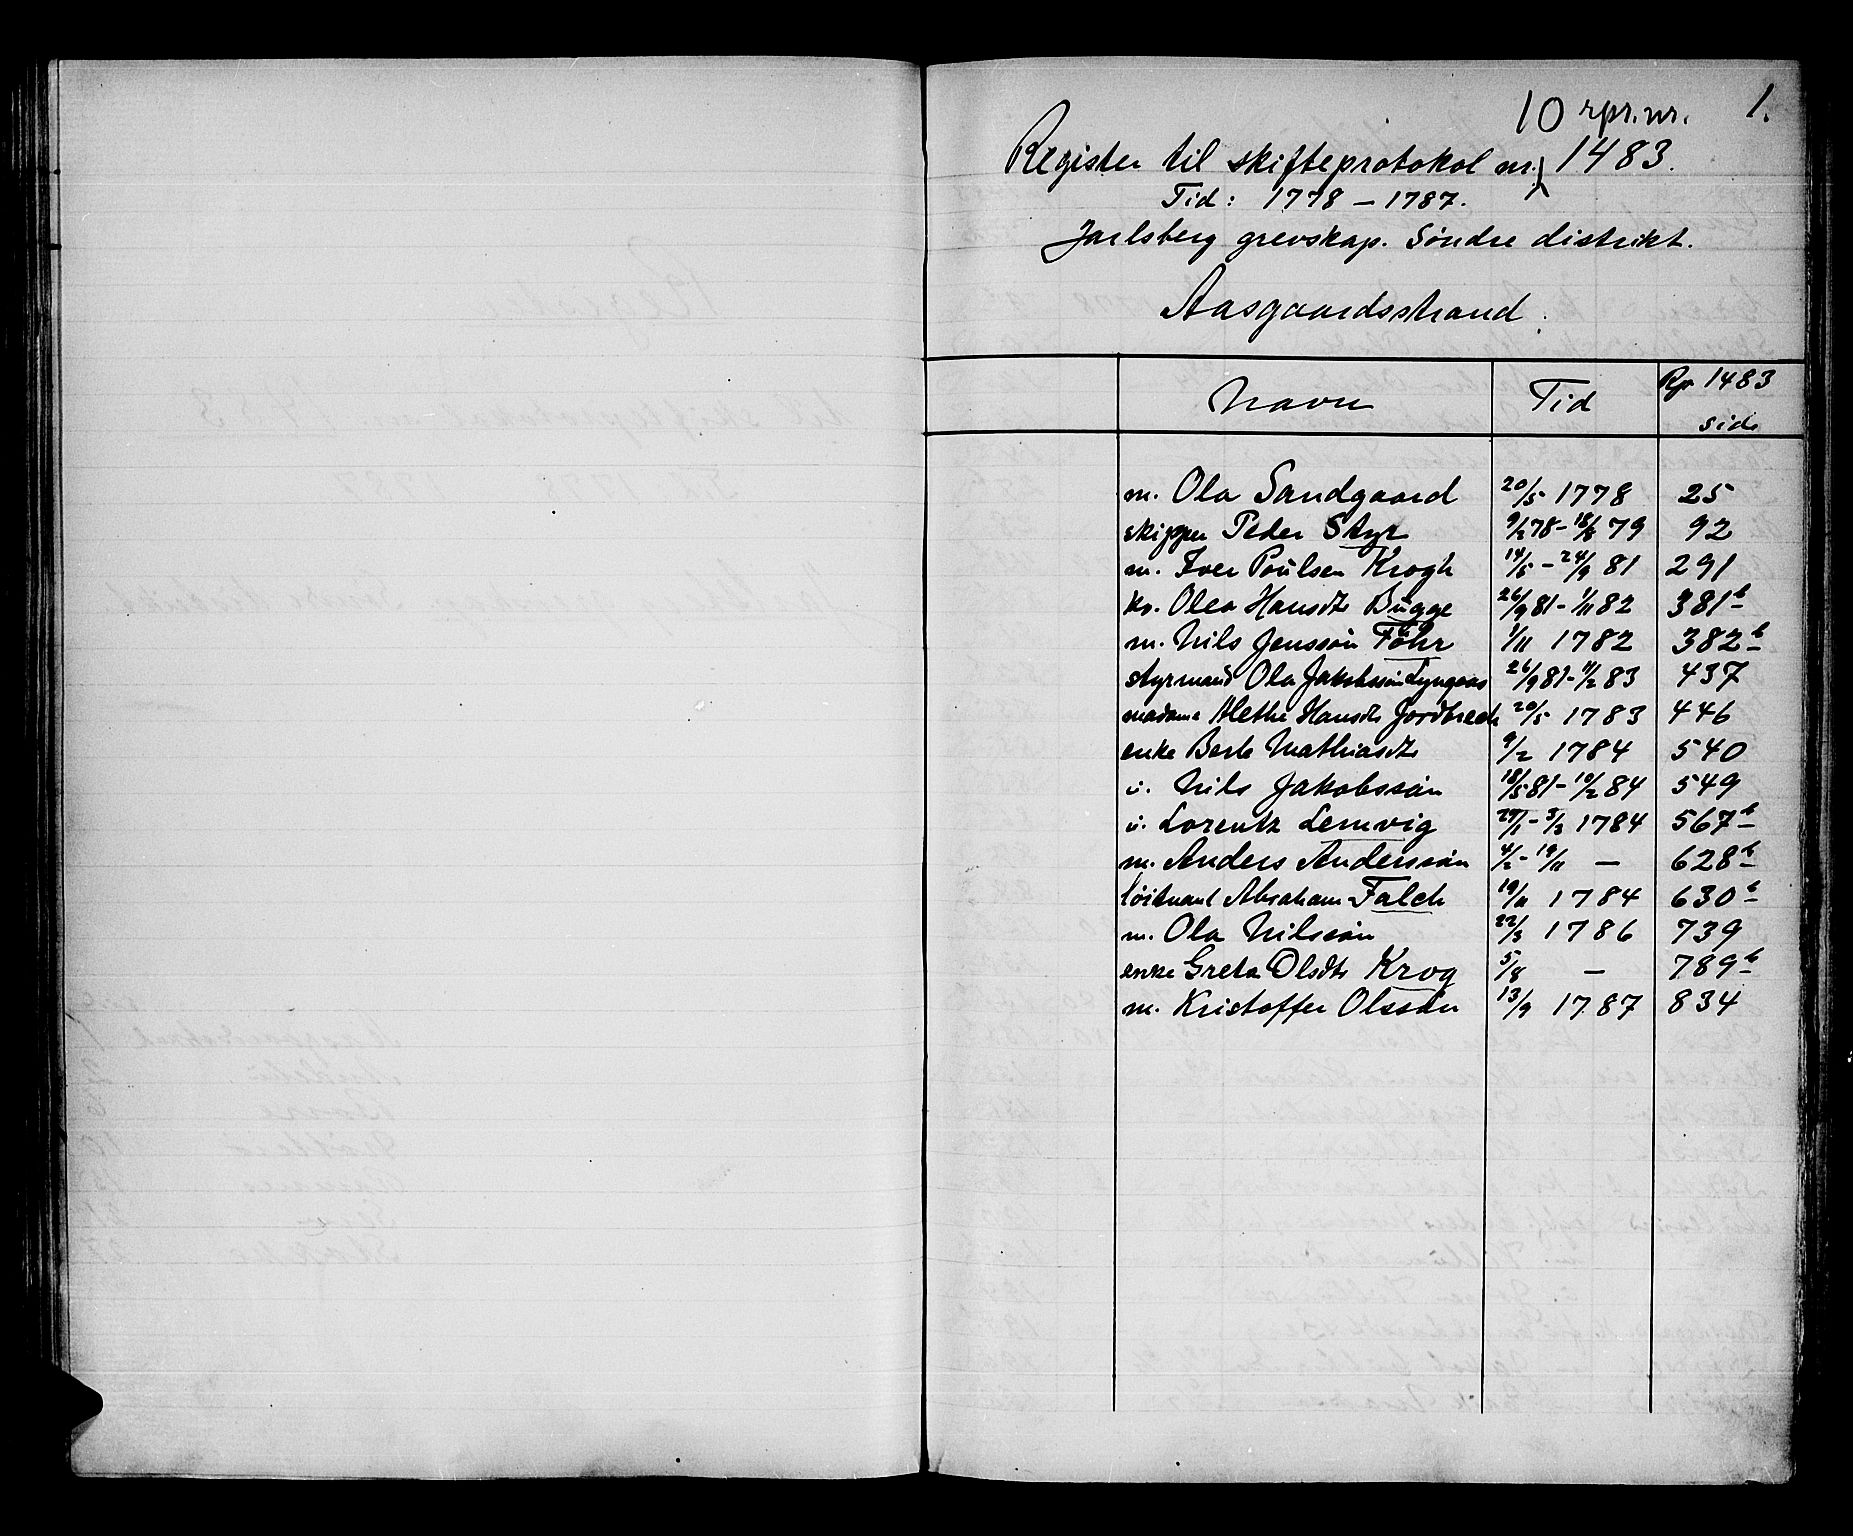 10 rpr.nr. 1.
Register til skifteprotokol nr. 1483.
Tid: 1778 – 1787.
Jarlsberg grevskap. Søndre distrikt.
Aasgaardsstrand.
Navn Tid Rp 1483 side
m. Ola Sandgaard 20/5 1778 25
skipper Peder Styr 9/2 78 – 18/8 79 92
m. Iver Poulsen Krogh 14/5 – 24/9 81 291
kv. Olea Hansdt Bugge 26/9 81 – 1/11 82 381b
m. Nils Jenssøn Föhr 1/11 1782 382b
styrmand Ola Jakobssøn Lyngaas 26/9 81 – 11/2 83 437
madame Alethe Hansdt Jordbrech 20/5 1783 446
enke Berte Mathiasdt 9/2 1784 540
u. Nils Jakobssøn 18/5 81 – 10/2 84 549
u. Lorentz Lemvig 29/1 – 3/3 1784 567b
m. Anders Anderssøn 4/2 – 19/11 – 628b
løitnant Abraham Falch 19/11 1784 630b
m. Ola Nilssøn 22/3 1786 739
enke Greta Olsdt Krog 5/8 – 789b
m. Kristoffer Olssøn 13/9 1787 834